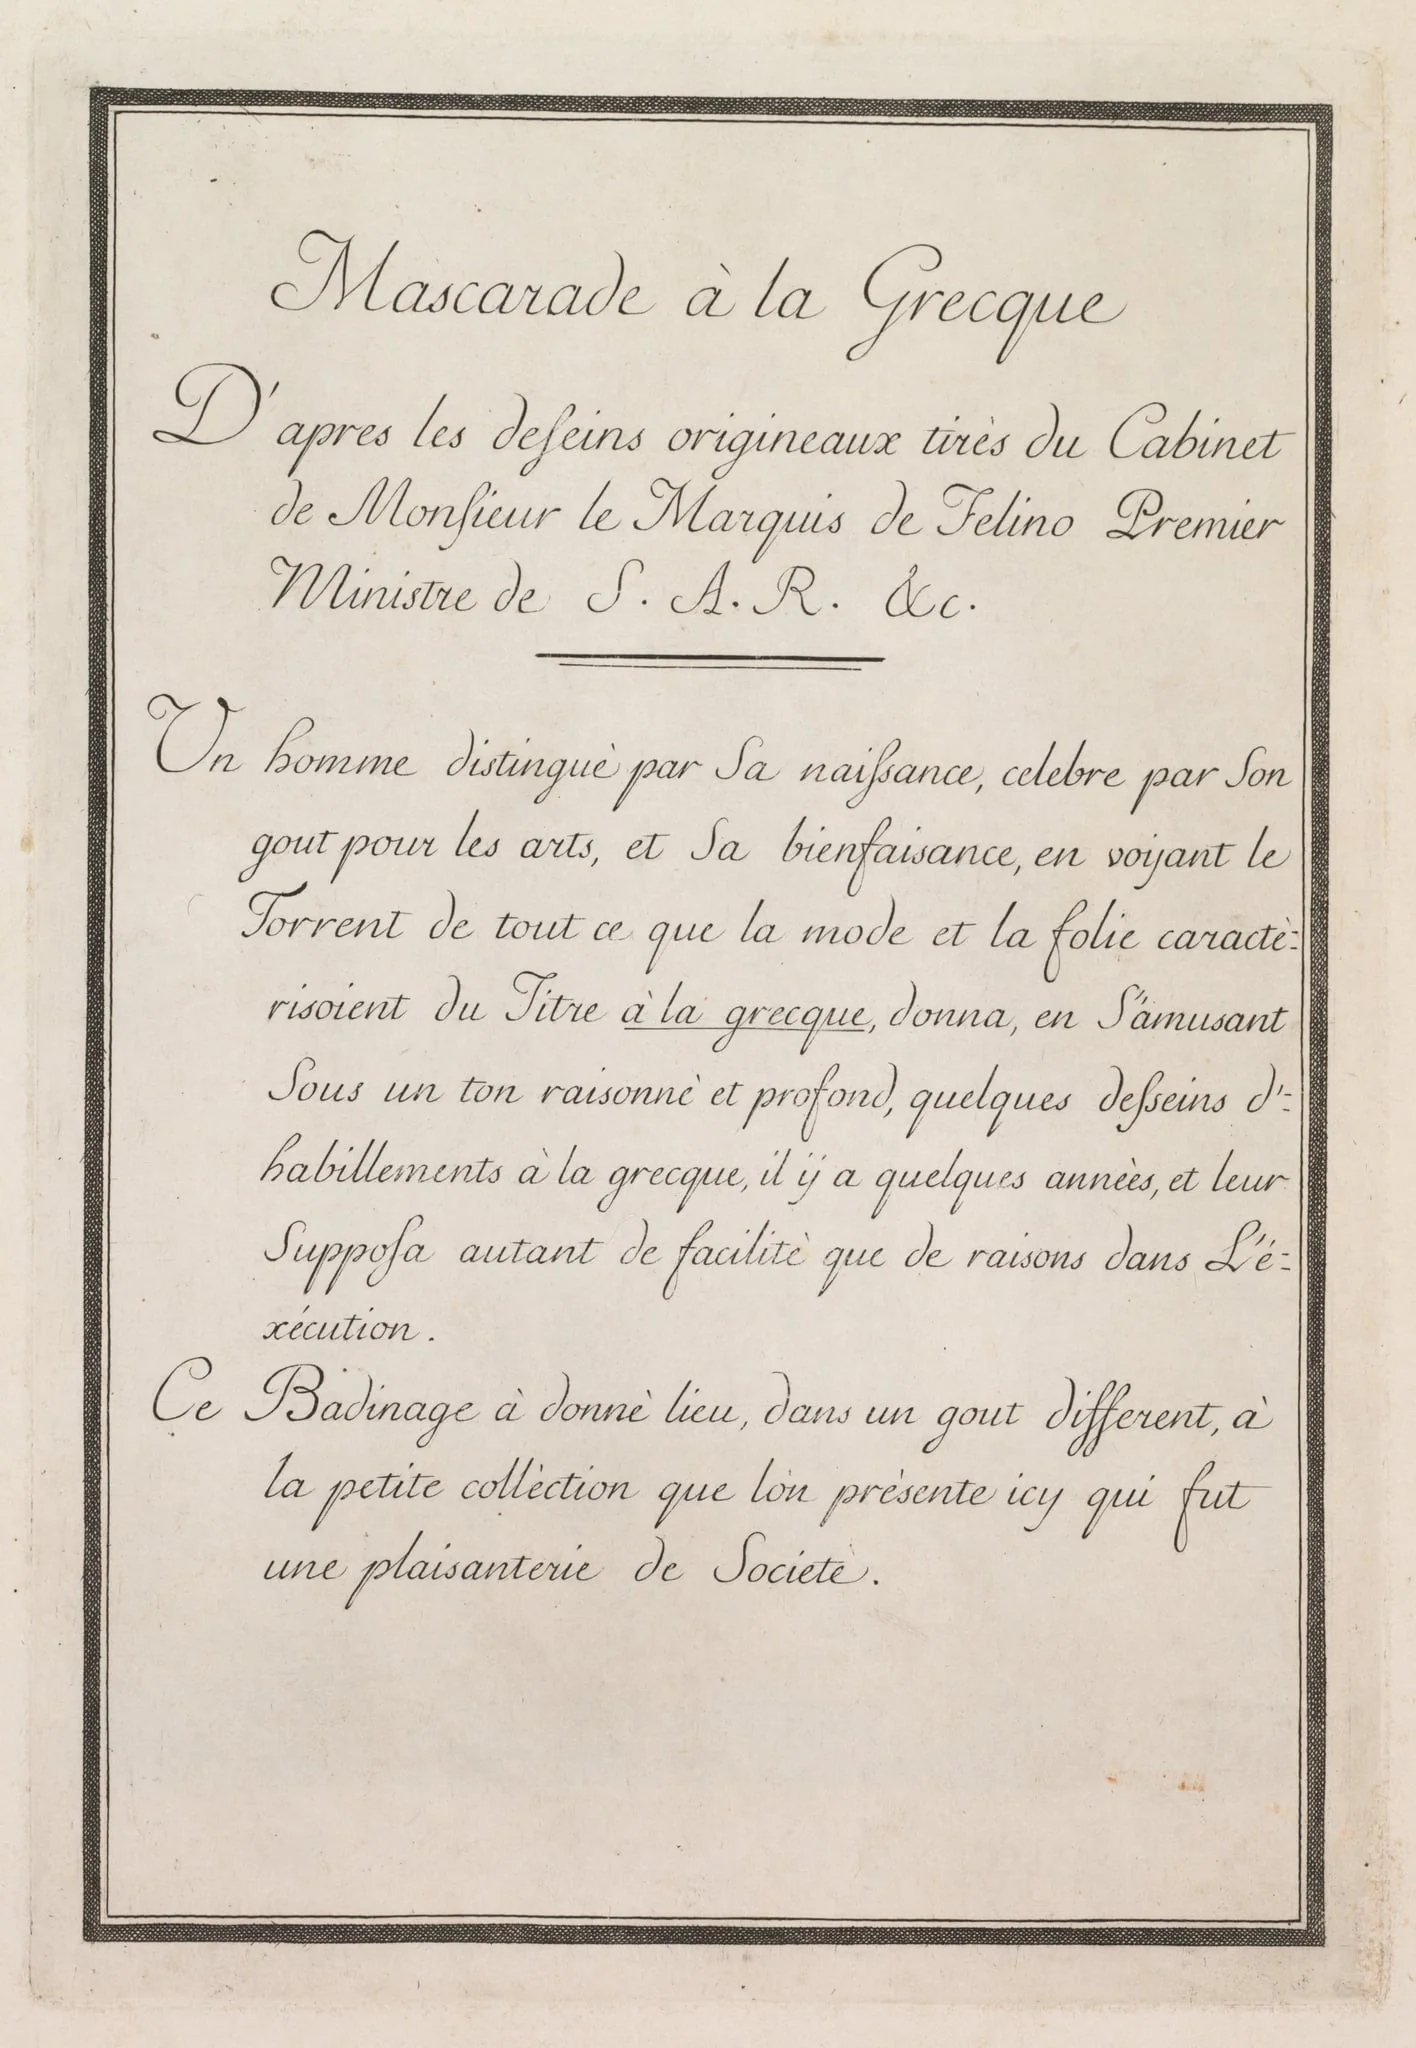 Mascarade à la Grecque
D'apres les deſeins origineaux tirès du Cabinet
de Monſieur le Marquis de Felino Premier
Ministre de S. A. R. &c.
Un homme distinguè par Sa naiſsance, celebre par Son
gout pour les arts, et Sa bienfaisance, en voyant le
Torrent de tout ce que la mode et la folie caractè=
risoient du Titre à la grecque, donna, en S'amusant
Sous un ton raisonnè et profond, quelques deſseins d'=
habillements à la grecque, il y a quelques annèes, et leur
Suppoſa autant de facilitè que de raisons dans L'é=
xécution.
Ce Badinage à donnè lieu, dans un gout different, à
la petite collèction que lòn prèsente icy qui fut
une plaisanterie de Societè.